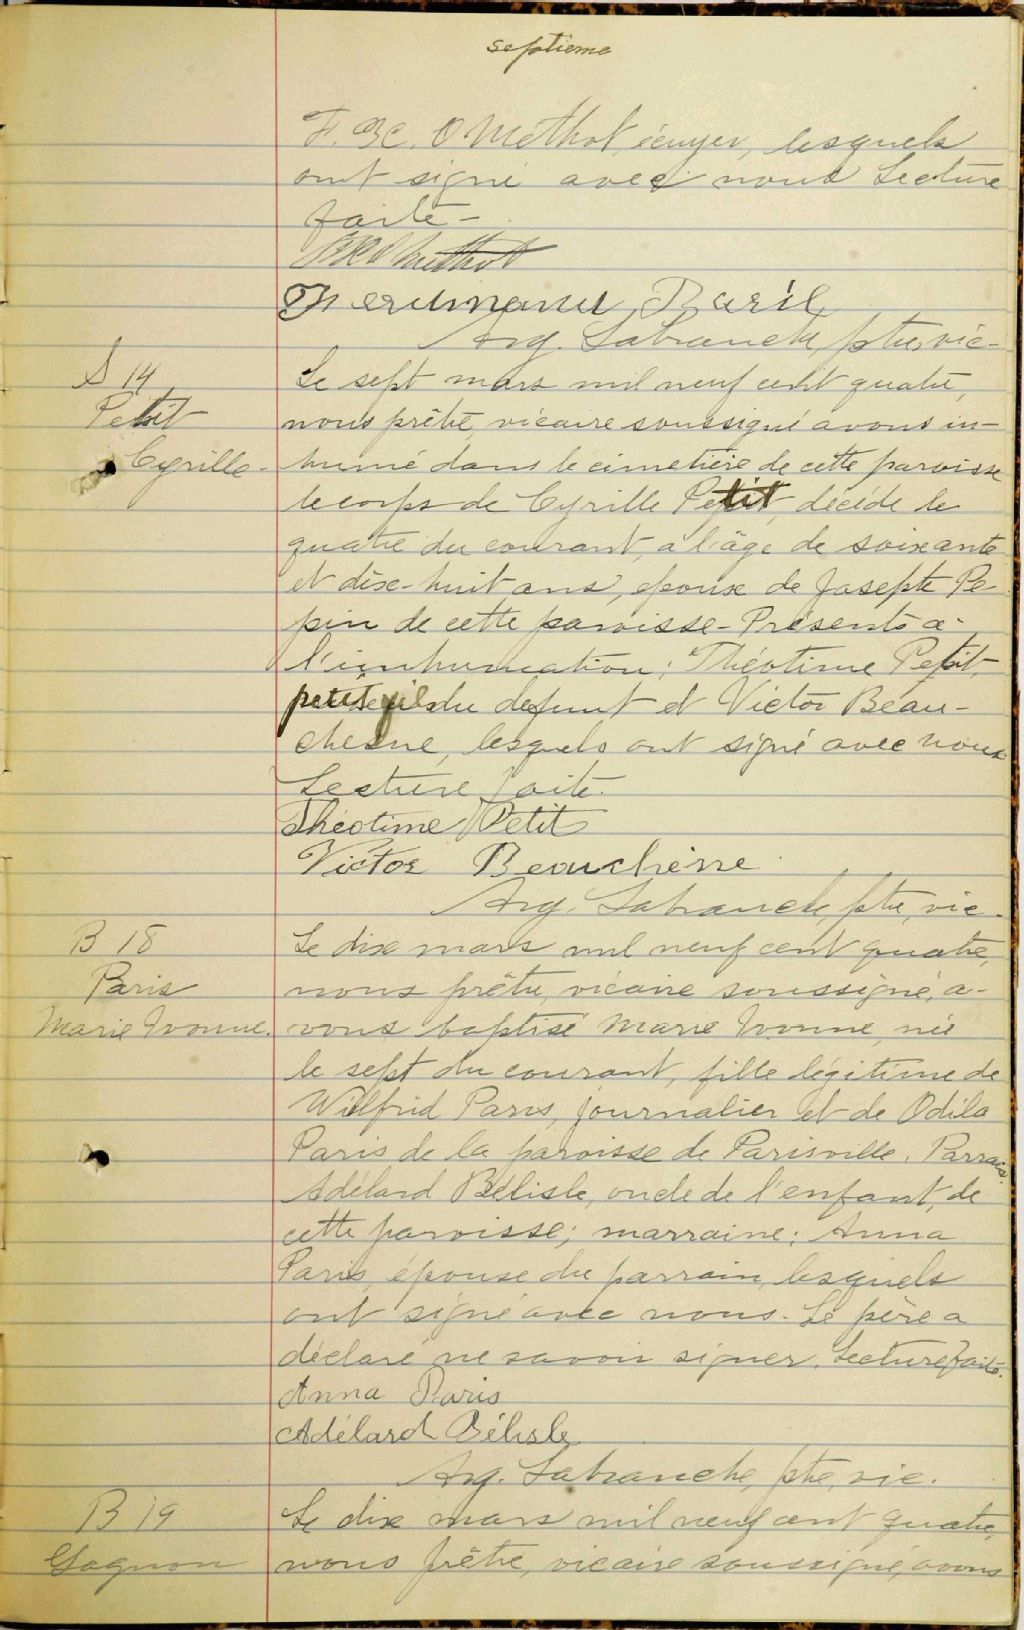 septieme
F. X. O Méthot, écuyer, lesquels
ont signé avec nous Lecture
faite -
Méthot
Ferdinand Baril
Arg. Labranche, ptre, vic-
S 14
Petit
Cyrille -
Le sept mars mil neuf cent quatre,
nous prêtre, vicaire soussigné avons in-
humé dans le cimetière de cette paroisse
le corps de Cyrille Petit, décédé le
quatre du courant, à l'âge de soixante
et dix-huit ans, epoux de Josepte Pe-
pin de cette paroisse - Présents à
l'inhumation: Théotime Petit,
petit fils du defunt et Victor Beau-
chesne, lesquels ont signé avec nous
Lecture faite.
Théotime Petit
Victor Beauchêne
Arg. Labranche, ptre, vic.
B 18
Paris
Marie Ivonne.
Le dix mars mil neuf cent quatre,
nous prêtre, vicaire soussigné, a-
vons baptisé Marie Ivonne, née
le sept du courant, fille légitime de
Wilfrid Paris, journalier et de Odila
Paris de la paroisse de Parisville. Parrain:
Adélard Bélisle, oncle de l'enfant, de
cette paroisse; marraine: Anna
Paris, épouse du parrain, lesquels
ont signé avec nous. Le père a
déclaré ne savoir signer. Lecture faite.
Anna Paris
Adélard Bélisle
Arg. Labranche, ptre, vic.
B 19
Gagnon
Le dix mars mil neuf cent quatre,
nous prêtre, vicaire soussigné, avons